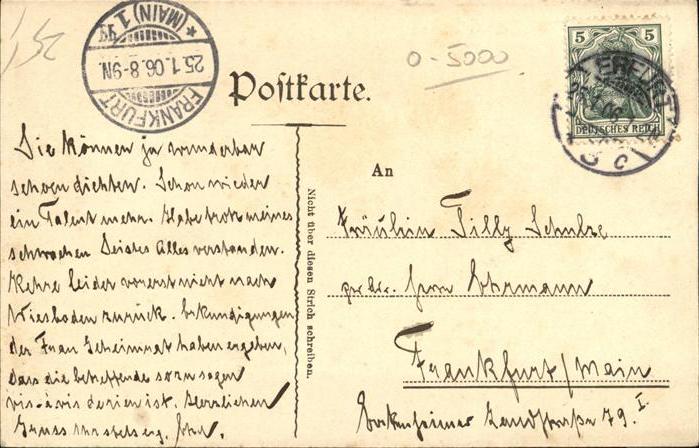 25
* (MAIN) 1 *
25.1.06.8-9N.
FRANKFURT
0-5000
5 5
DEUTSCHES REICH
ERFURT
Postkarte.
Sie können ja wunderbar
schon dichten. Schon wieder
ein Talent mehr. Habe trotz meines
schwachen Geistes Alles verstanden.
Kehre leider vorerst nicht nach
Wiesbaden zurück. Erkundigungen
der Frau Geheimrat haben ergeben,
dass die betreffende sozusagen
vis-à-vis de rien ist. Herzlichen
Gruss
Nicht über diesen Strich schreiben.
An
Fräulein Tilly Schulze
Herrn Ehrmann
Frankfurt/Main
Bockenheimer Landstrasse 79. I.